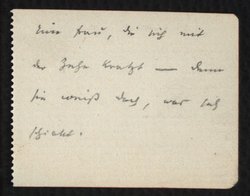 Eine Frau, die sich mit
der Zehe kratzt — denn
sie weiß doch, was sich
schickt.